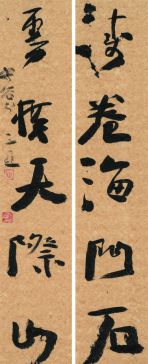 濤卷海門石
雲橫天際山